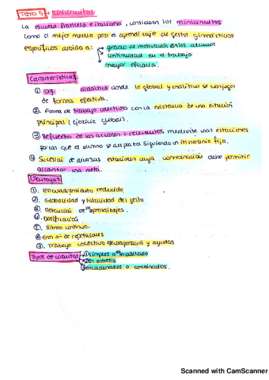 Tema 5: Minicircuitos
La escuela francesa e italiana, consideran los minicircuitos
como el mejor medio para el aprendizaje de gestos gimnásticos
específicos debido a: grado de motivación en los alumnos
continuidad en el trabajo
mayor eficacia.
Características
① Org. dinámica donde lo global y analítico se conjugan
de forma efectiva.
② Forma de trabajo colectivo con la existencia de una estación
principal (ejercicio global).
③ Refuerzo de las acciones mediante unas estaciones
por las que el alumno se desplaza siguiendo un itinerario fijo.
④ Sucesión de diversas estaciones cuya combinación debe permitir
alcanzar una meta.
Ventajas
① Encuadramiento reducido
② Globalidad y totalidad del gesto
③ Sensación de aprendizajes.
④ Dosificación
⑤ Ritmo continuo
⑥ Gran nº de repeticiones
⑦ Trabajo colectivo y ayudas
Tipos de circuitos simples o modelado
en estrella
encadenados o combinados.
Scanned with CamScanner